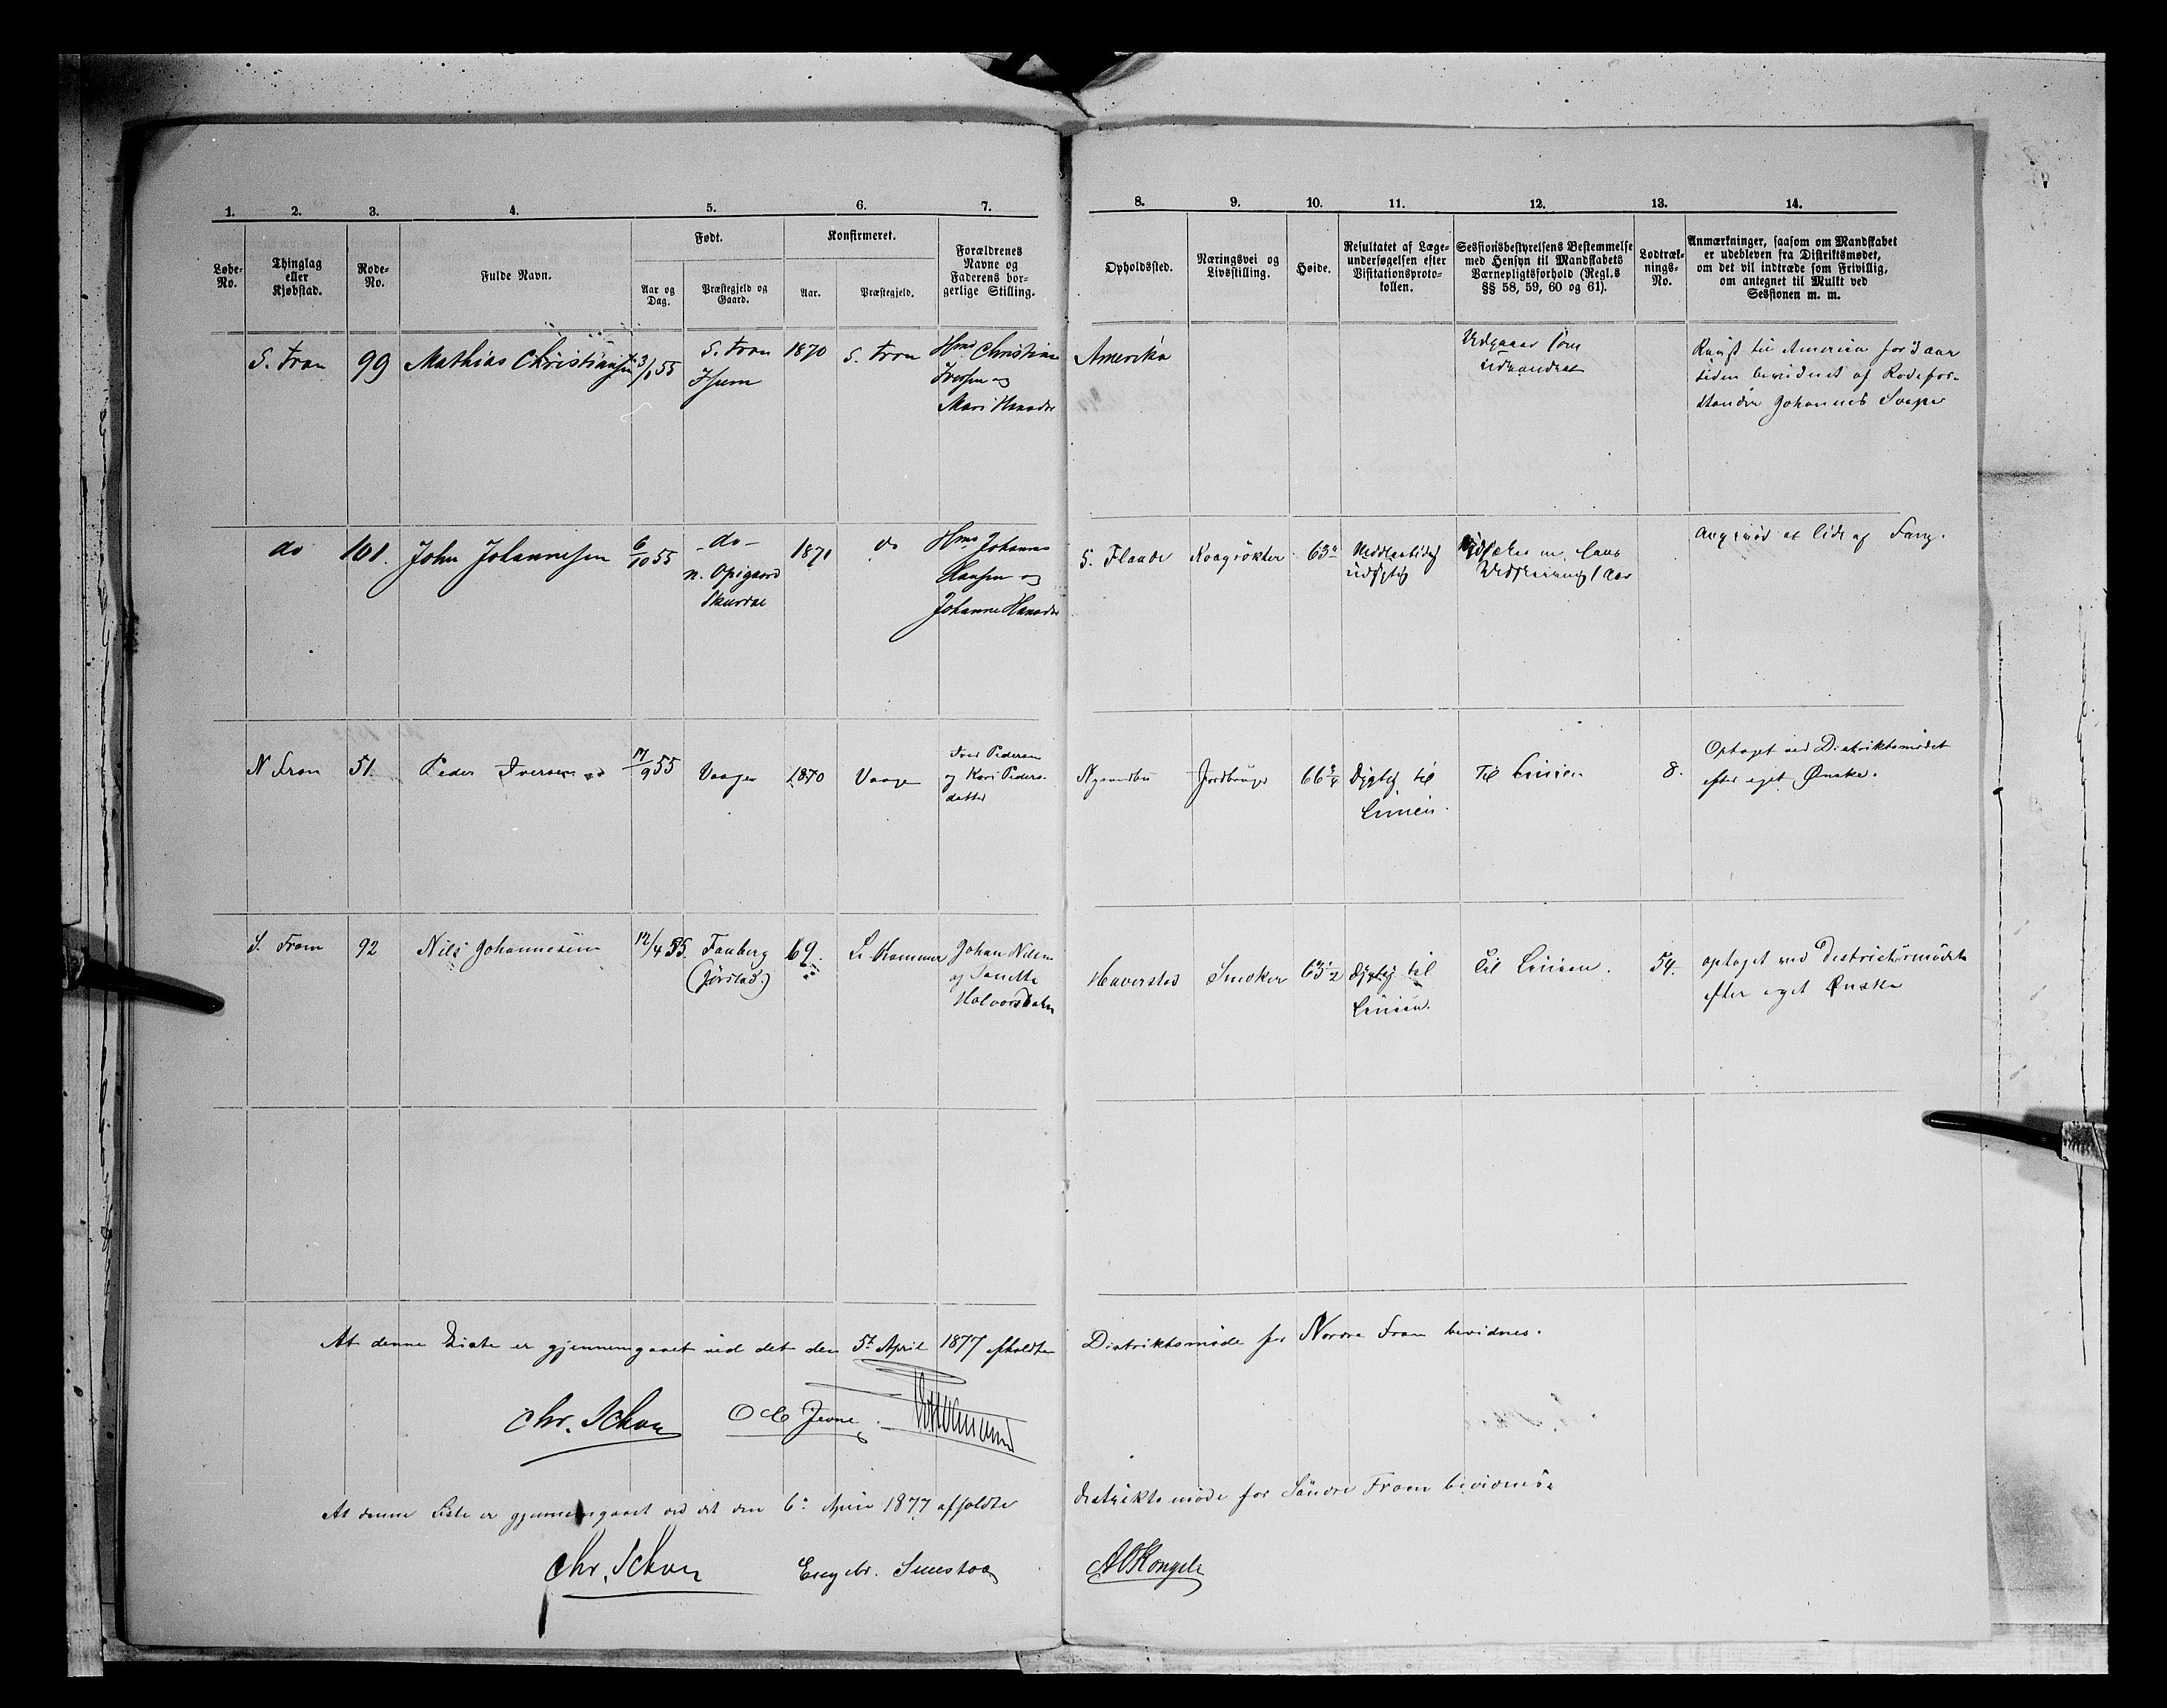 1. 2. 3. 4. 5. 6. 7. 8. 9. 10. 11. 12. 13. 14.
Løbe-
No.
Thinglag
eller
Kjøbstad.
Rode-
No.
Fulde Navn.
Født.
Aar og
Dag.
Præstegjeld og
Gaard.
Konfirmeret.
Aar.
Præstegjeld.
Forældrenes
Navne og
Faderens bor-
gerlige Stilling.
Opholdssted.
Næringsvei og
Livsstilling.
Høide.
Resultatet af Læge-
undersøgelsen efter
Visitationsproto-
kollen.
Sessionsbestyrelsens Bestemmelse
med Hensyn til Mandskabets
Værnepligtsforhold (Regl.s
§§ 58, 59, 60 og 61).
Lodtræk-
nings-
No.
Anmærkninger, saasom om Mandskabet
er udebleven fra Distriktsmødet,
om det vil indtræde som Frivillig,
om antegnet til Mulkt ved
Sessionen m. m.
S. Fron 99 Mathias Christiansen 3/1 55
S. Fron
1870 S. Fron
Hmd Christian
Iversen og
Mari Hansdtr
Amerika
Udgaaer som
udvandret
Reist til America for 3 aar
siden bevidnet af Rodefor-
standen Johannes
do 101. John Johannesen 6/10 55
-do-
n. Opigaard
1871 do
Hmd Johannes
Hansen og
Johanne Hansdtr
S. Flaade
63
Midlertidig
udygtig
1 Aar
at lide af
N Fron 51. Peder Iversen 17/9 55 Vaage 1870 Vaage
Iver Pedersen
og Kari Peders-
datter
Jordbruger 66 3/4
Dygtig til
Linien.
Til Linien 8.
Optaget ved Distriktsmødet
efter eget Ønske.
S. Fron 92 Nils Johannesen 12/4 55.
Faaberg
(Jørstad.)
69. Li Hammer
Johan Nilsen
og
Halvorsdatter
Haverstad Snedker 63 1/2
dygtig til
Linien.
Til Linien. 54.
optaget ved Districtsmødet
efter eget Ønske
At denne Liste er gjennemgaaet ved det den 5t April 1877 afholdte Distriktsmøde for Nordre Fron bevidnes.
Chr. Schou O Jevne
At denne Liste er gjennemgaaet ved det den 6. April 1877 afholdte distriktsmøde for Søndre Fron bevidnes
Chr. Schou Engebr.